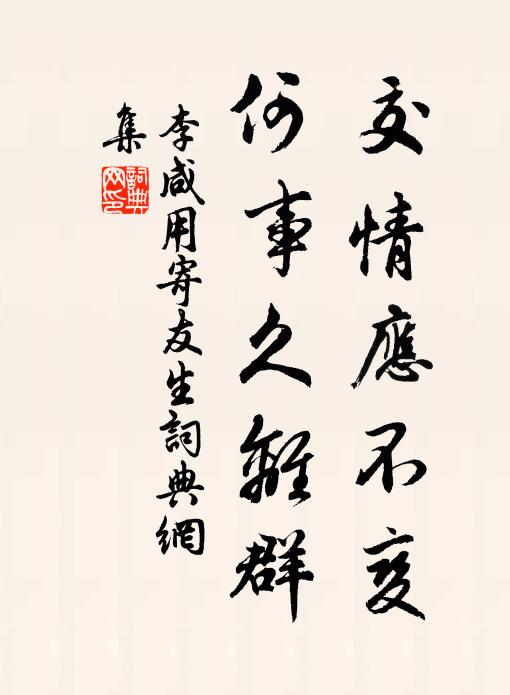 交情應不變
何事久離群
李咸用寄友生詞典網
集
詞典
网印